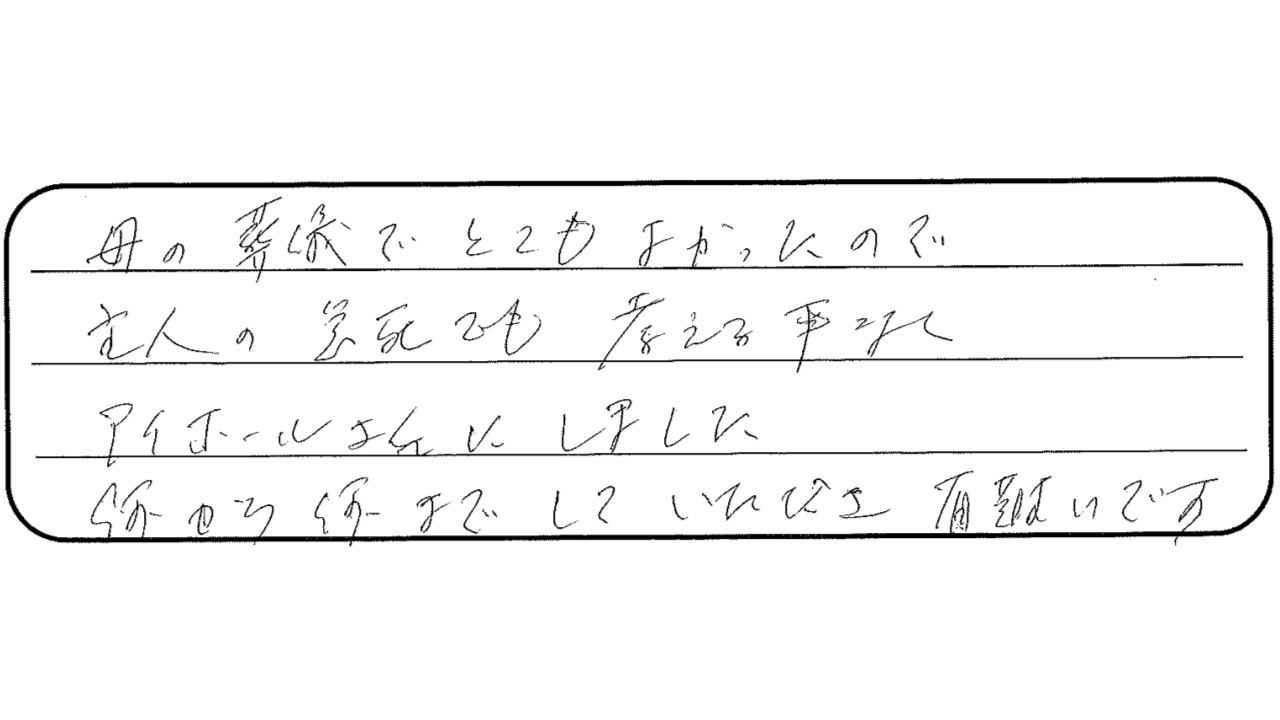 母の葬儀でとてもよかったので
主人の急死でも考える事なく
アイホールさんにしました
何から何までしていただき有難いです